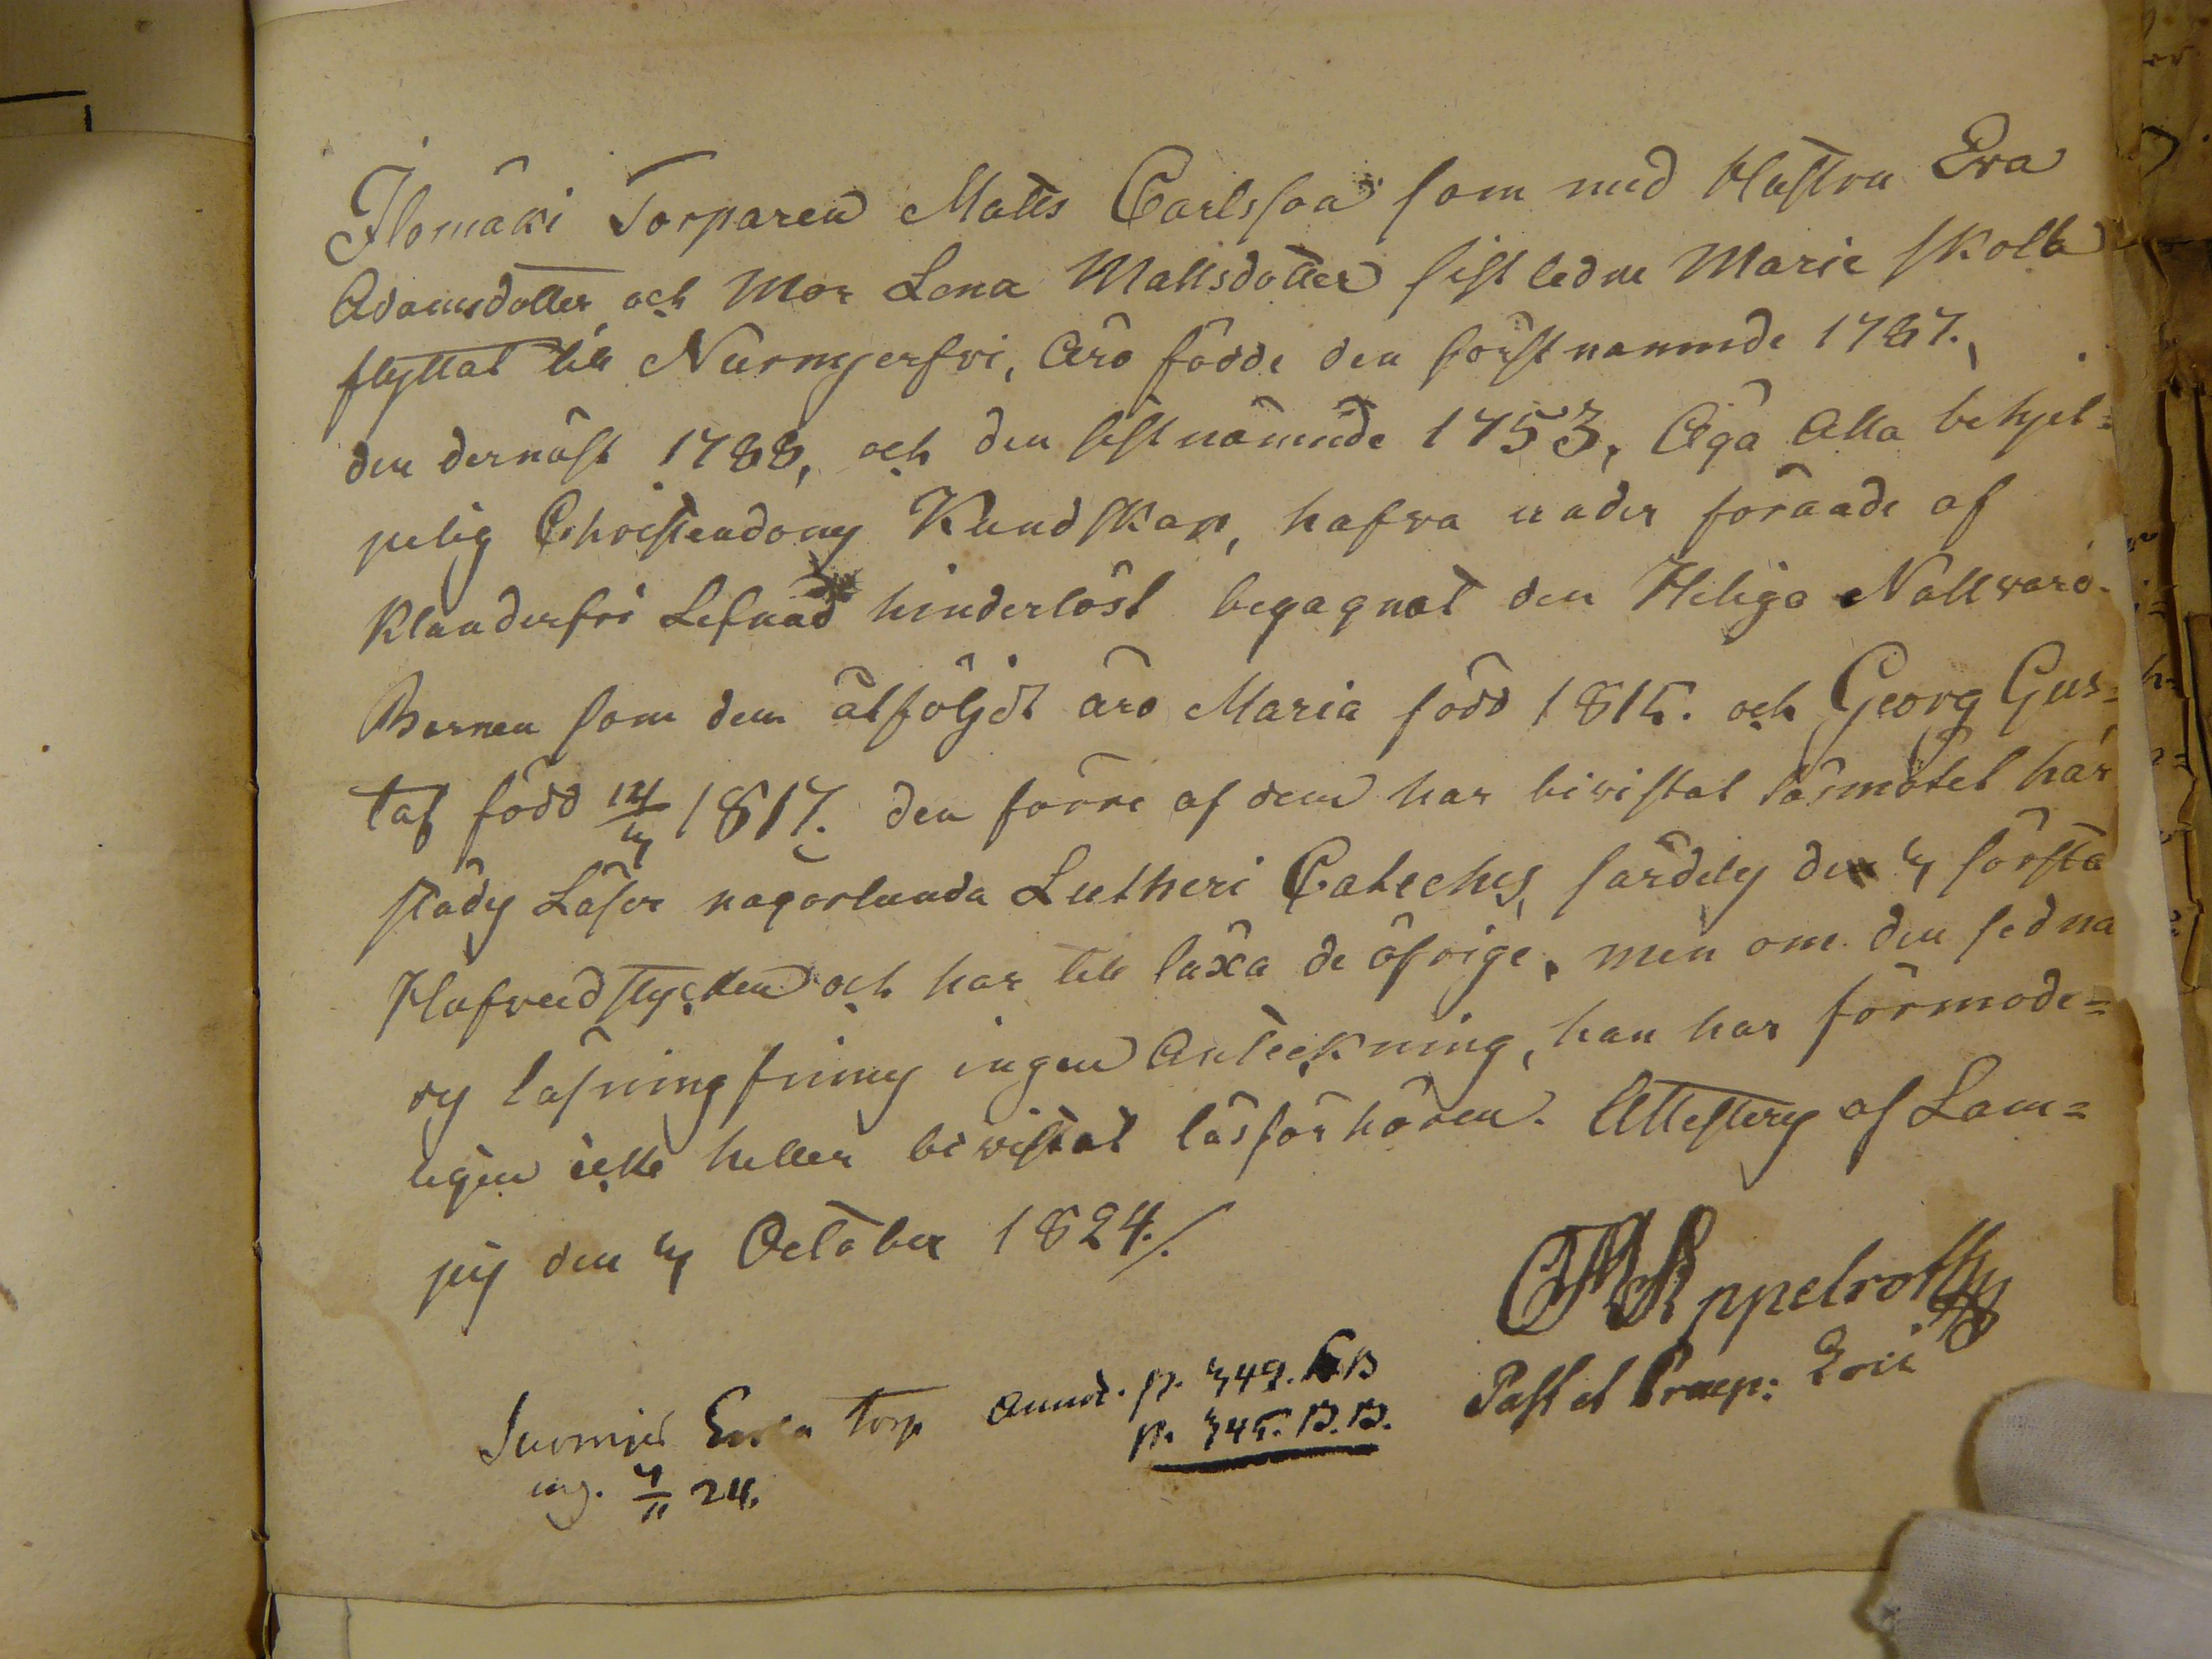 Ilomäki Torparen Matts Carlsson som med Hustru Eva
Adamsdotter och Mor Lena Mattsdotter sistledne Marie
flyttat till Nurmjerfvi, äro födde den först namnde 1787.,
den dernäst 1788, och den sistnämnde 1753, Äga Alla behjel=
pelig Christendoms Kundskap, hafva under föraade af
Klanderfri Lefnad hinderlöst begagnat den Heliga Nattvard.
Barnen som dem åtföljdt äro Maria född 1815. och Georg Gus=
taf född 14/4 1817. den förre af dem har bivistat läsmötet här
städs Läser någorlunda Lutheri Cateches, särdeles de 4 första
Hufvudstycken och har till läxa de öfrige, men om den sedna
res läsning finns ingen Anteckning, han har förmode=
ligen icke heller bivistat läsförhören. Attesteras af Lam=
pis den 4 October 1824./.
Appelroth
Past et Praep:
Torp Annot. p. 349.
p. 345. B.B.
ing. 4/11 24.